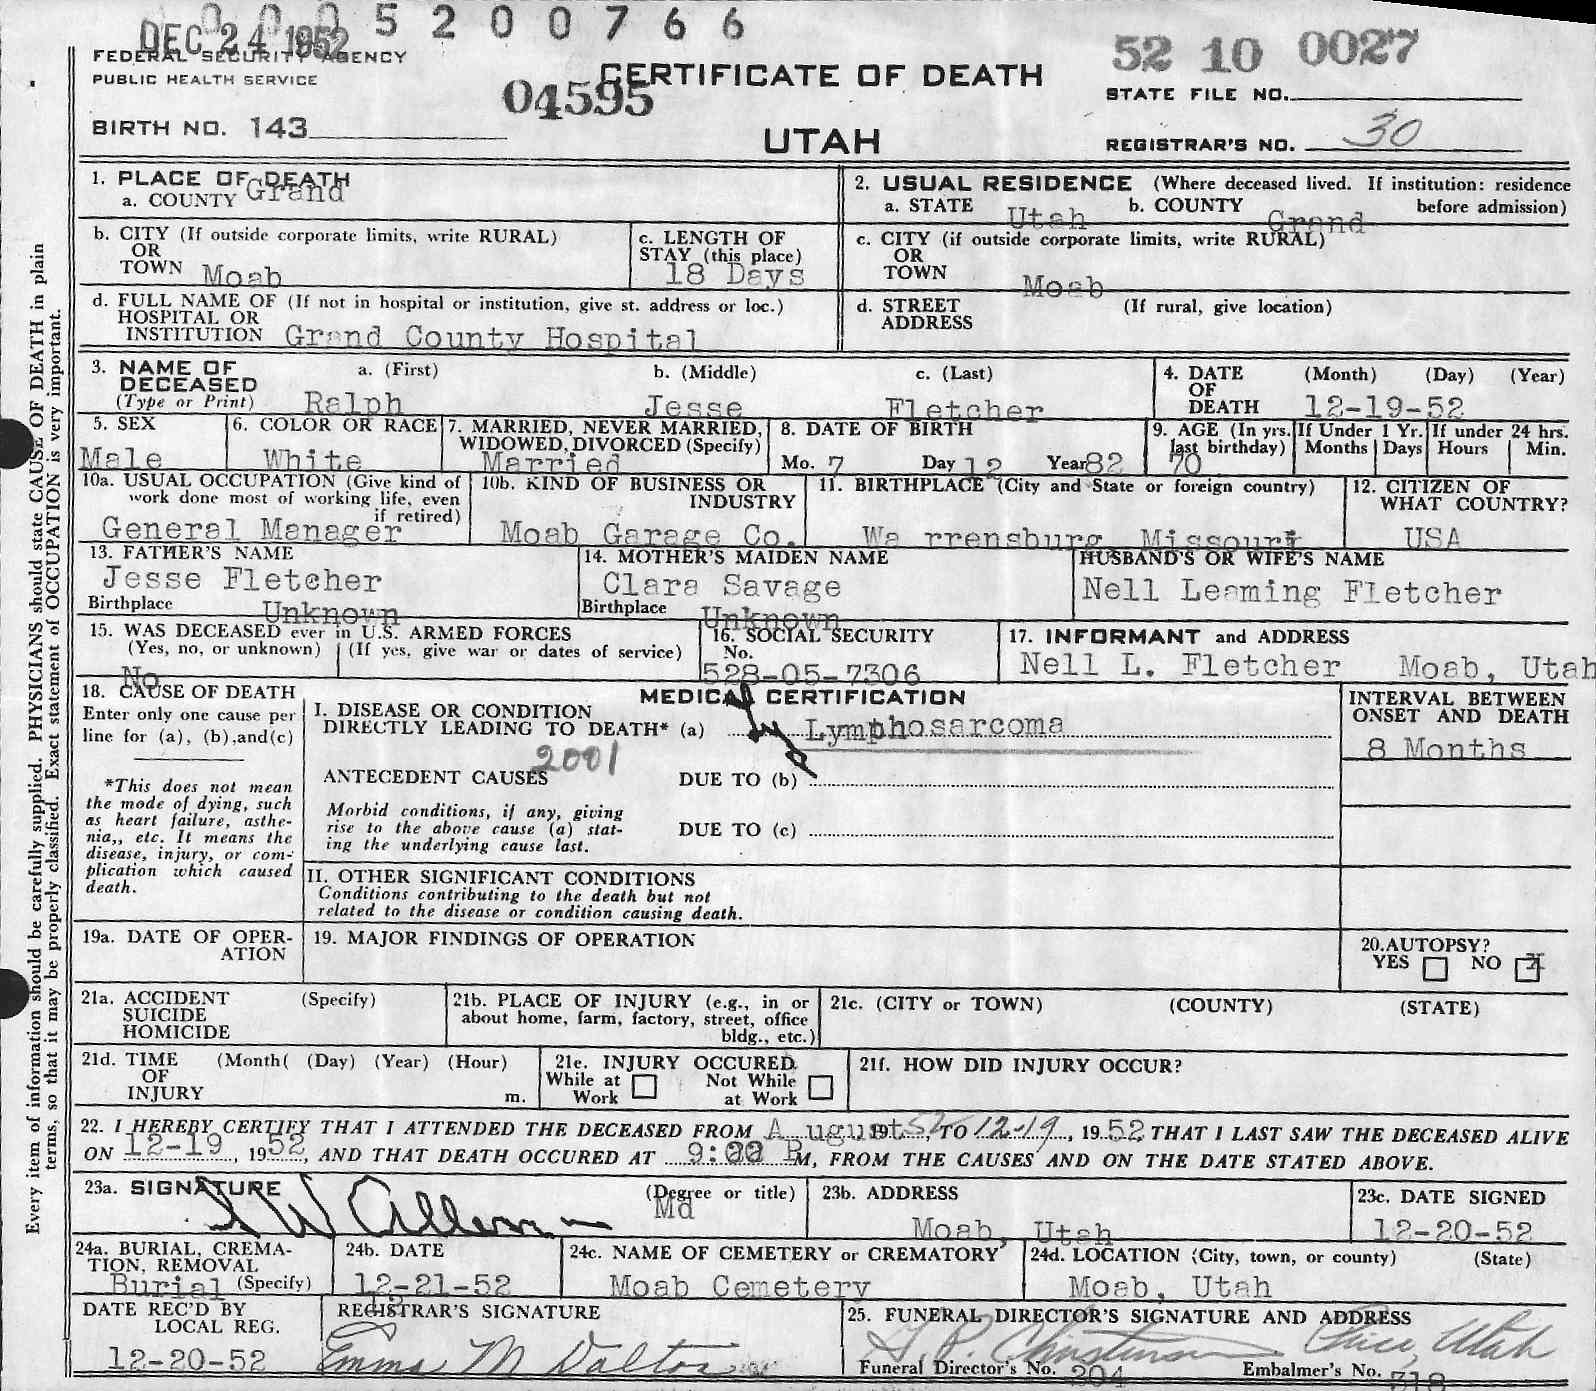 0 0 0 5 2 0 0 7 6 6
DEC 24 1952
FEDERAL SECURITY AGENCY
PUBLIC HEALTH SERVICE
BIRTH NO. 143
04595
CERTIFICATE OF DEATH
UTAH
52 10 0027
STATE FILE NO.
REGISTRAR'S NO. 30
Every item of information should be carefully supplied. PHYSICIANS should state CAUSE OF DEATH in plain
terms, so that it may be properly classified. Exact statement of OCCUPATION is very important.
1. PLACE OF DEATH
a. COUNTY Grand
2. USUAL RESIDENCE (Where deceased lived. If institution: residence
before admission)
a. STATE Utah b. COUNTY Grand
b. CITY (If outside corporate limits, write RURAL)
OR
TOWN Moab
c. LENGTH OF
STAY (this place)
18 Days
c. CITY (if outside corporate limits, write RURAL)
OR
TOWN Moab
d. FULL NAME OF (If not in hospital or institution, give st. address or loc.)
HOSPITAL OR
INSTITUTION Grand County Hospital
d. STREET (If rural, give location)
ADDRESS
3. NAME OF
DECEASED
(Type or Print)
a. (First) b. (Middle) c. (Last)
Ralph Jesse Fletcher
4. DATE (Month) (Day) (Year)
OF
DEATH 12-19-52
5. SEX
Male
6. COLOR OR RACE
White
7. MARRIED, NEVER MARRIED,
WIDOWED, DIVORCED (Specify)
Married
8. DATE OF BIRTH
Mo. 7 Day 12 Year 82
9. AGE (In yrs.
last birthday)
70
If Under 1 Yr.
Months Days
If under 24 hrs.
Hours Min.
10a. USUAL OCCUPATION (Give kind of
work done most of working life, even
if retired)
General Manager
10b. KIND OF BUSINESS OR
INDUSTRY
Moab Garage Co.
11. BIRTHPLACE (City and State or foreign country)
Wa rrensburg Missouri
12. CITIZEN OF
WHAT COUNTRY?
USA
13. FATHER'S NAME
Jesse Fletcher
Birthplace Unknown
14. MOTHER'S MAIDEN NAME
Clara Savage
Birthplace Unknown
HUSBAND'S OR WIFE'S NAME
Nell Leaming Fletcher
15. WAS DECEASED ever in U.S. ARMED FORCES
(Yes, no, or unknown) (If yes, give war or dates of service)
No
16. SOCIAL SECURITY
No.
528-05-7306
17. INFORMANT and ADDRESS
Nell L. Fletcher Moab, Utah
18. CAUSE OF DEATH
Enter only one cause per
line for (a), (b),and(c)
*This does not mean
the mode of dying, such
as heart failure, asthe-
nia,, etc. It means the
disease, injury, or com-
plication which caused
death.
MEDICAL CERTIFICATION
I. DISEASE OR CONDITION
DIRECTLY LEADING TO DEATH* (a) Lymphosarcoma
2001
ANTECEDENT CAUSES DUE TO (b)
Morbid conditions, if any, giving
rise to the above cause (a) stat-
ing the underlying cause last.
DUE TO (c)
INTERVAL BETWEEN
ONSET AND DEATH
8 Months
II. OTHER SIGNIFICANT CONDITIONS
Conditions contributing to the death but not
related to the disease or condition causing death.
19a. DATE OF OPER-
ATION
19. MAJOR FINDINGS OF OPERATION
20.AUTOPSY?
YES NO X
21a. ACCIDENT (Specify)
SUICIDE
HOMICIDE
21b. PLACE OF INJURY (e.g., in or
about home, farm, factory, street, office
bldg., etc.)
21c. (CITY or TOWN) (COUNTY) (STATE)
21d. TIME (Month( (Day) (Year) (Hour)
OF
INJURY m.
21e. INJURY OCCURED
While at Work
Not While at Work
21f. HOW DID INJURY OCCUR?
22. I HEREBY CERTIFY THAT I ATTENDED THE DECEASED FROM A ugust 1952, TO 12-19, 1952, THAT I LAST SAW THE DECEASED ALIVE
ON 12-19, 1952, AND THAT DEATH OCCURED AT 9:00 P M, FROM THE CAUSES AND ON THE DATE STATED ABOVE.
23a. SIGNATURE (Degree or title)
Allen Md
23b. ADDRESS
Moab, Utah
23c. DATE SIGNED
12-20-52
24a. BURIAL, CREMA-
TION, REMOVAL
Burial (Specify)
24b. DATE
12-21-52
24c. NAME OF CEMETERY or CREMATORY
Moab Cemetery
24d. LOCATION (City, town, or county) (State)
Moab, Utah
DATE REC'D BY
LOCAL REG.
12-20-52
REGISTRAR'S SIGNATURE
Emma M Dalton
25. FUNERAL DIRECTOR'S SIGNATURE AND ADDRESS
Christensen Price, Utah
Funeral Director's No. 204 Embalmer's No. 318